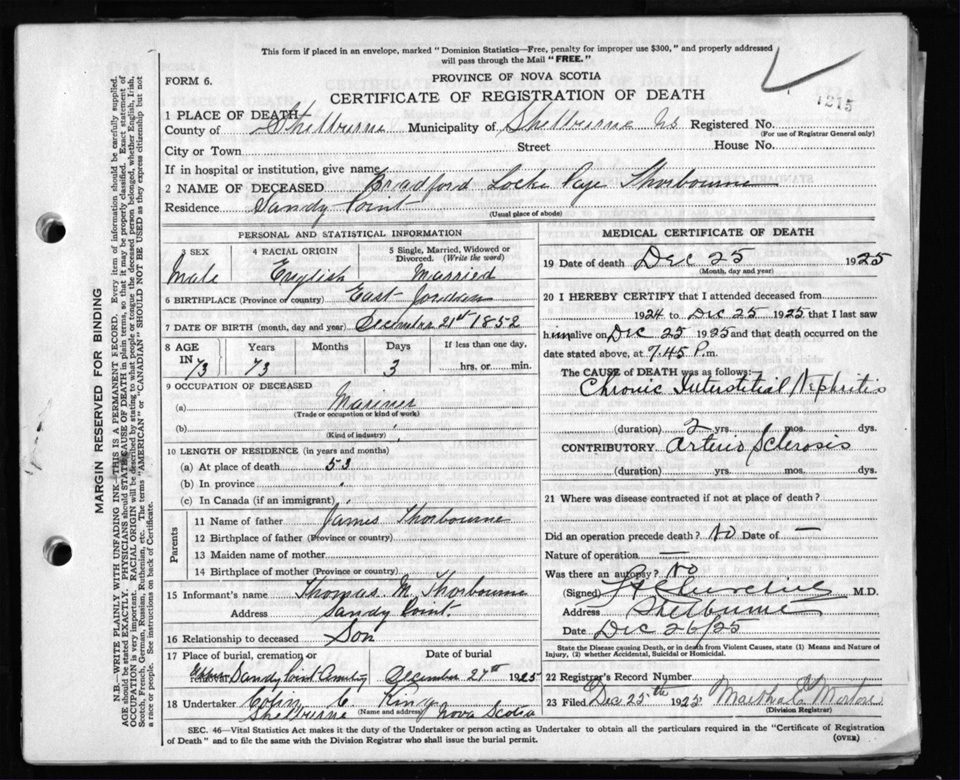 This form if placed in an envelope, marked "Dominion Statistics—Free, penalty for improper use $300," and properly addressed
will pass through the Mail "FREE."
FORM 6.
PROVINCE OF NOVA SCOTIA
CERTIFICATE OF REGISTRATION OF DEATH
1215
1 PLACE OF DEATH
County of Shelburne Municipality of Shelburne NS Registered No.
(For use of Registrar General only)
City or Town Street House No.
If in hospital or institution, give name
2 NAME OF DECEASED Bradford Locke Page Thorbourne
Residence Sandy Point
(Usual place of abode)
PERSONAL AND STATISTICAL INFORMATION
3 SEX 4 RACIAL ORIGIN 5 Single, Married, Widowed or Divorced. (Write the word)
Male English Married
6 BIRTHPLACE (Province or country) East Jordan
7 DATE OF BIRTH (month, day and year) December 21st 1852
8 AGE Years Months Days If less than one day,
IN 73 73 3 hrs. or min.
9 OCCUPATION OF DECEASED
(a) Mariner
(Trade or occupation or kind of work)
(b)
(Kind of industry)
10 LENGTH OF RESIDENCE (in years and months)
(a) At place of death 53
(b) In province "
(c) In Canada (if an immigrant) "
Parents
11 Name of father James Thorbourne
12 Birthplace of father (Province or country)
13 Maiden name of mother
14 Birthplace of mother (Province or country)
15 Informant's name Thomas M. Thorbourne
Address Sandy Point.
16 Relationship to deceased Son
17 Place of burial, cremation or Date of burial
Sandy Point Cemetery December 27th 1925
18 Undertaker C. King
Shelburne (Name and address) Nova Scotia
MEDICAL CERTIFICATE OF DEATH
19 Date of death Dec 25 1925
(Month, day and year)
20 I HEREBY CERTIFY that I attended deceased from
1924 to Dec 25 1925 that I last saw
him alive on Dec 25 1925 and that death occurred on the
date stated above, at 7.45 P.m.
The CAUSE of DEATH was as follows:
Chronic Interstitial Nephritis
(duration) 2 yrs. mos. dys.
CONTRIBUTORY Arterio Sclerosis
(duration) yrs. mos. dys.
21 Where was disease contracted if not at place of death?
Did an operation precede death? No Date of —
Nature of operation —
Was there an autopsy? No
(Signed) Churchill M.D.
Address Shelburne
Date Dec 26/25
State the Disease causing Death, or in death from Violent Causes, state (1) Means and Nature of
Injury, (2) whether Accidental, Suicidal or Homicidal.
22 Registrar's Record Number
23 Filed Dec 25th 1925 Martha
(Division Registrar)
SEC. 46—Vital Statistics Act makes it the duty of the Undertaker or person acting as Undertaker to obtain all the particulars required in the "Certificate of Registration
of Death" and to file the same with the Division Registrar who shall issue the burial permit.
(OVER)
MARGIN RESERVED FOR BINDING
N.B.—WRITE PLAINLY WITH UNFADING INK—THIS IS A PERMANENT RECORD. Every item of information should be carefully supplied.
AGE should be stated EXACTLY. PHYSICIANS should STATE CAUSE OF DEATH in plain terms, so that it may be properly classified. Exact statement of
OCCUPATION is very important. RACIAL ORIGIN will be described by stating to what people or tongue the deceased person belonged, whether English, Irish,
Scotch, French, German, Russian, Ruthenian, etc. The terms "AMERICAN" or "CANADIAN" SHOULD NOT BE USED as they express citizenship but not
a race or people. See instructions on back of Certificate.